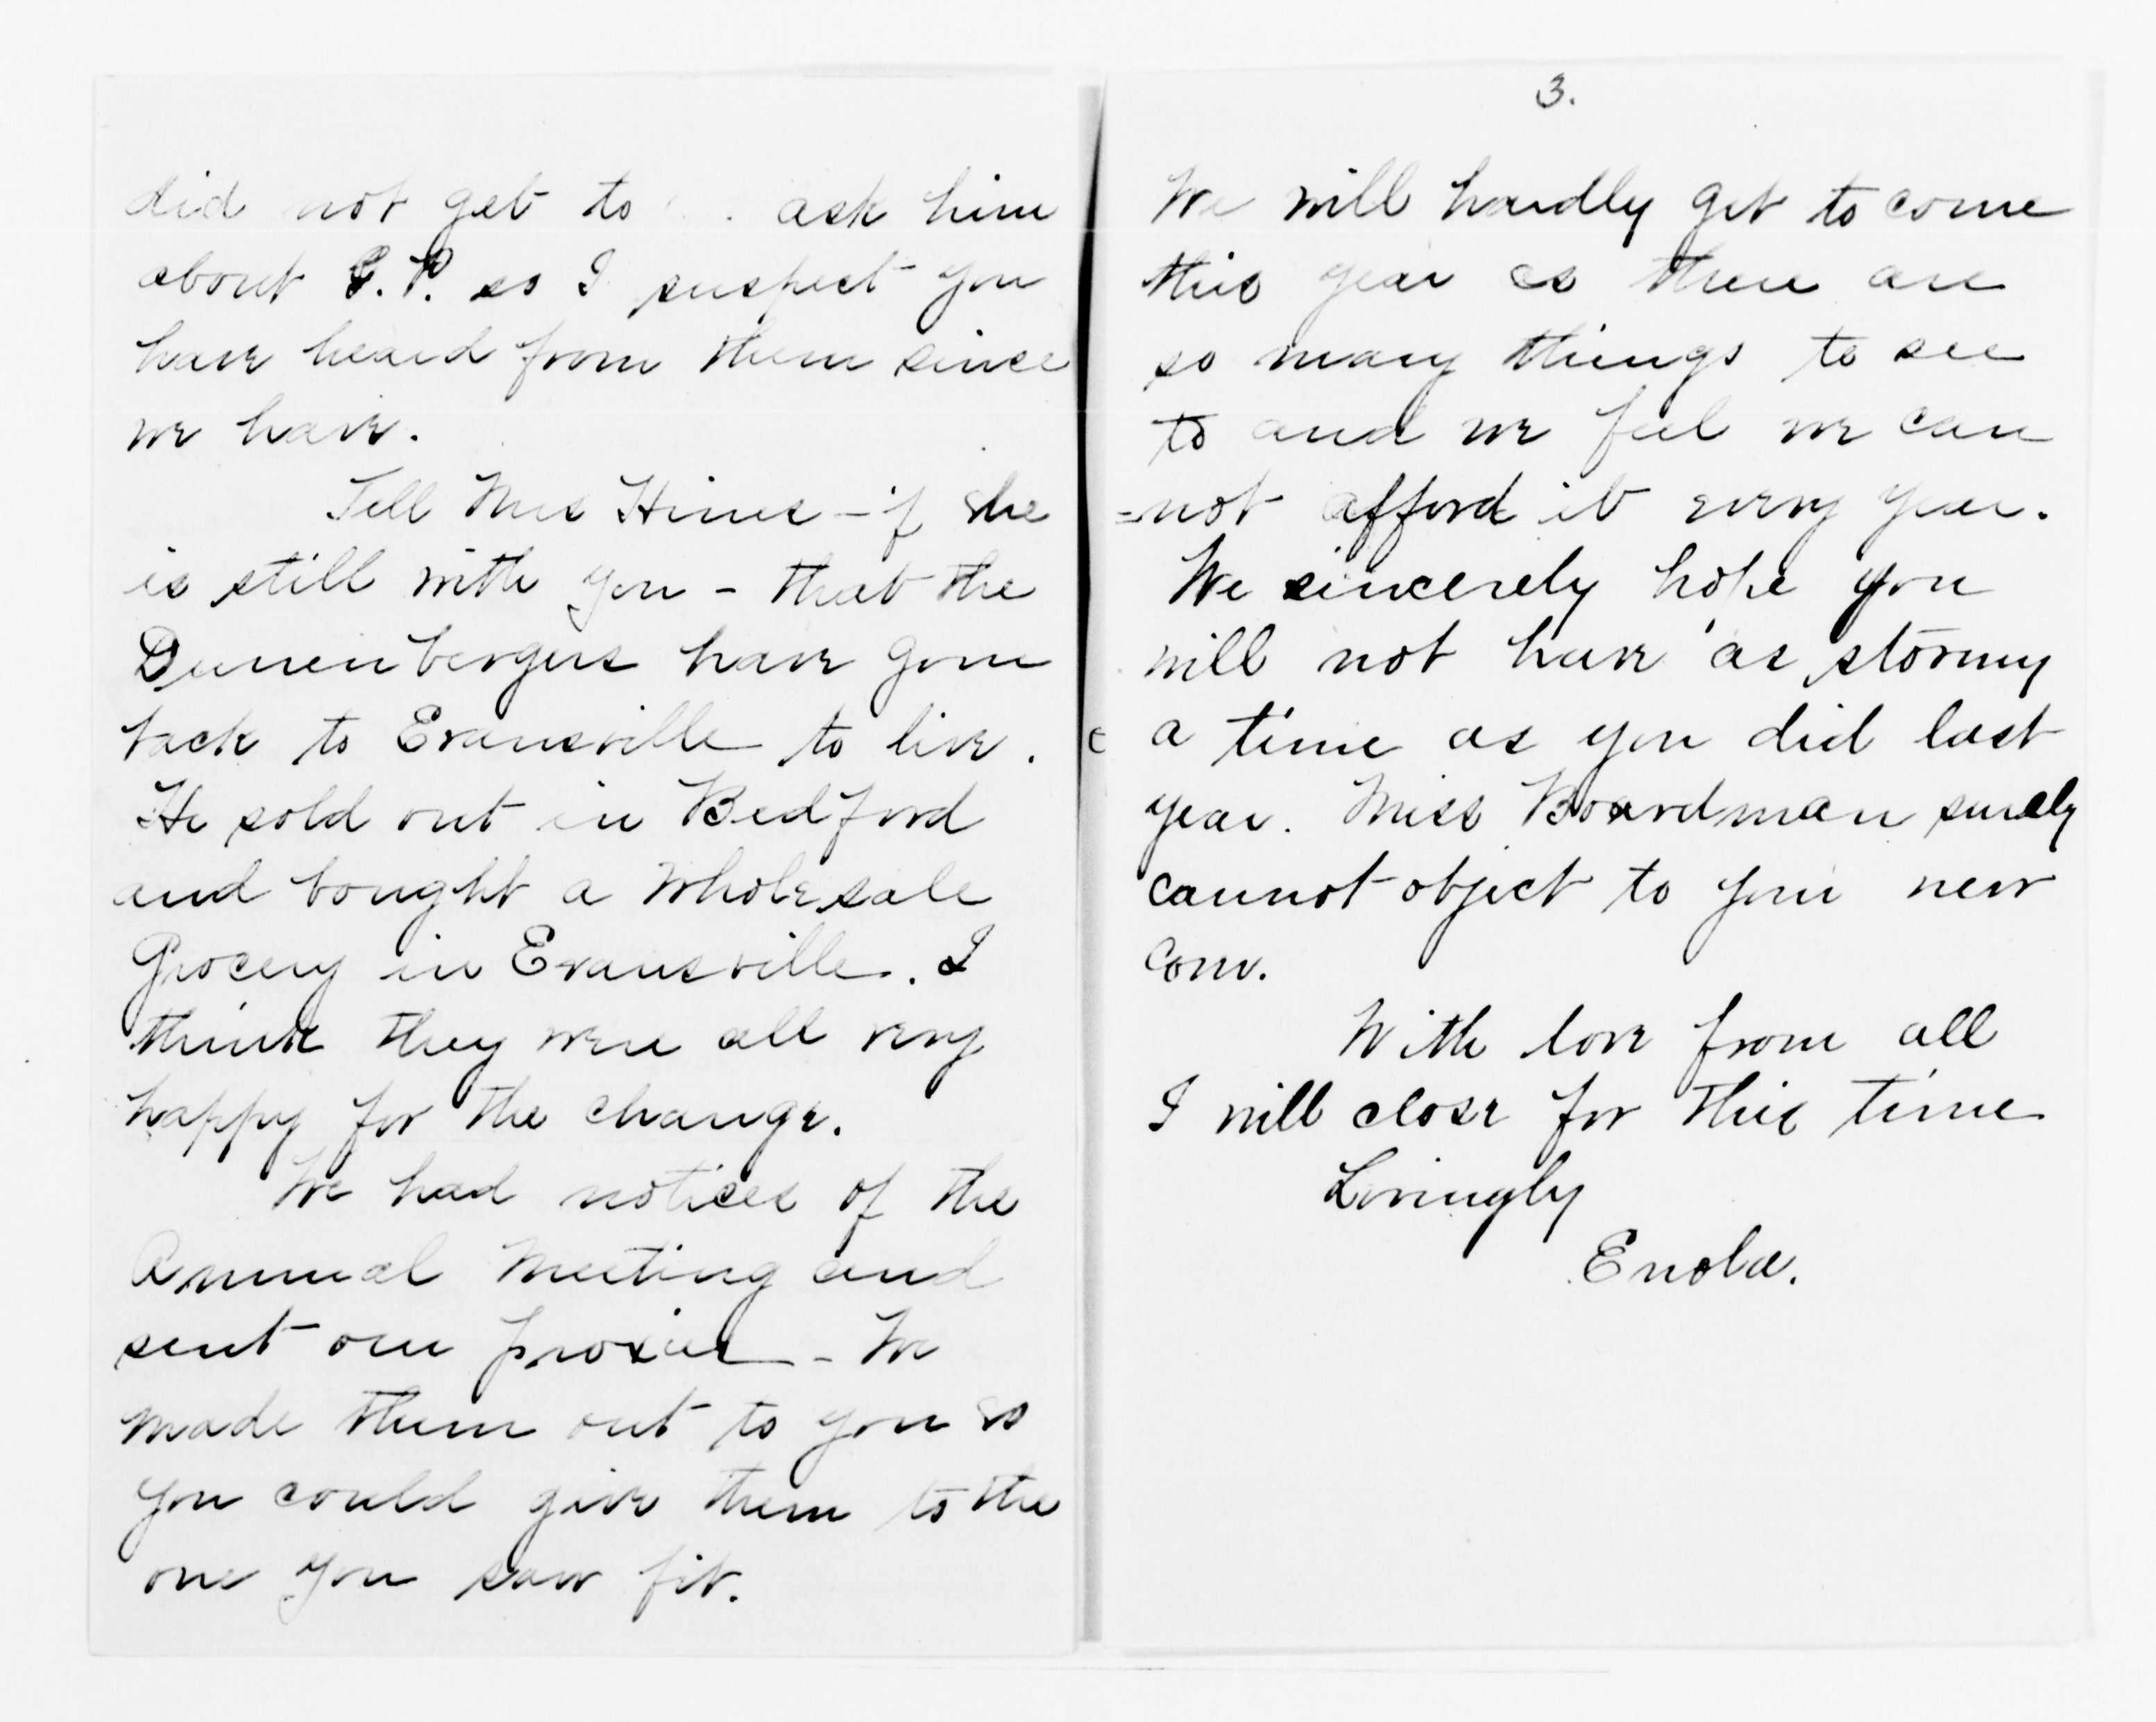 did not get to ask him
about G.P. so I suspect you
have heard from them since
we have.
Tell Mrs Hines - if she
is still with you - that the
Dannenbergers have gone
back to Evansville to live.
He sold out in Bedford
and bought a Wholesale
Grocery in Evansville. I
think they were all very
happy for the change.
We had notices of the
Annual Meeting and
sent our proxies - We
made them out to you so
you could give them to the
one you saw fit.
3.
We will hardly get to come
this year as there are
so many things to see
to and we feel we can
=not afford it every year.
We sincerely hope you
will not have as stormy
a time as you did last
year. Miss Boardman surely
cannot object to your new
Com.
With love from all
I will close for this time
Lovingly
Enola.